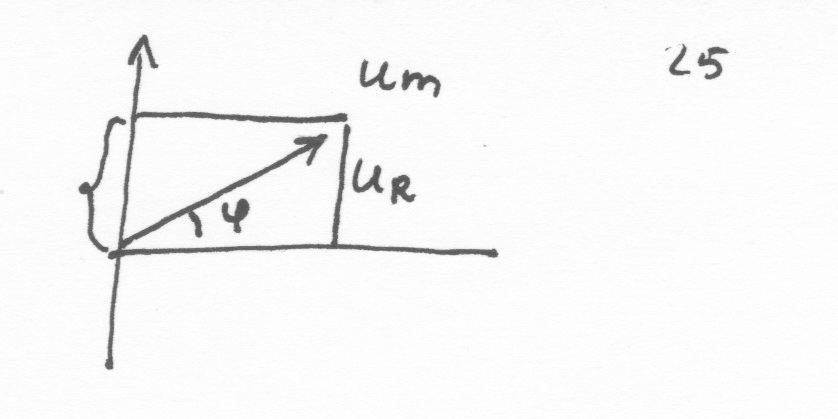 25
Um
UR
φ